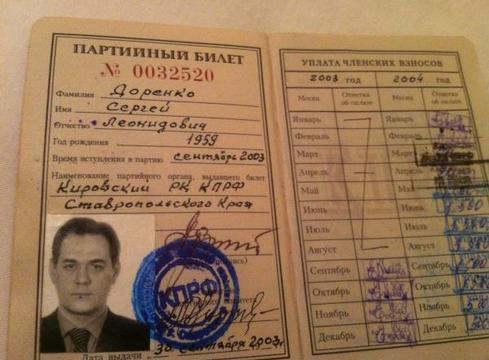 ПАРТИЙНЫЙ БИЛЕТ
№ 0032520
Фамилия Доренко
Имя Сергей
Отчество Леонидович
Год рождения 1959
Время вступления в партию сентябрь 2003
Наименование партийного органа, выдавшего билет
Кировский РК КПРФ
Ставропольского Края
КПРФ
Дата выдачи 30 сентября 2003 г.
УПЛАТА ЧЛЕНСКИХ ВЗНОСОВ
2003 год 2004 год
Месяц Отметка об оплате Месяц Отметка об оплате
Январь Январь
Февраль Февраль
Март Март
Апрель Апрель
Май Май
Июнь Июнь 500
Июль Июль
Август Август
Сентябрь Сентябрь
Октябрь Октябрь
Ноябрь Ноябрь
Декабрь Декабрь